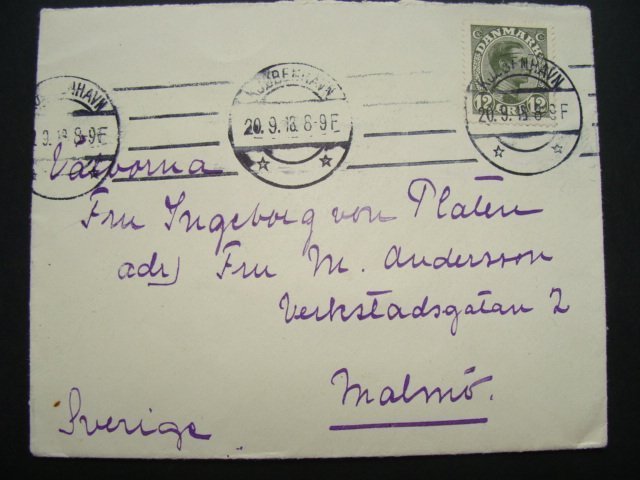 DANMARK
12 12
KJØBENHAVN
20.9.18.8-9F
KJØBENHAVN
20.9.18.8-9F
KJØBENHAVN
20.9.18 8-9F
Välborna
Fru Ingeborg von Platen
adr) Fru M. Andersson
Verkstadsgatan 2
Malmö.
Sverige